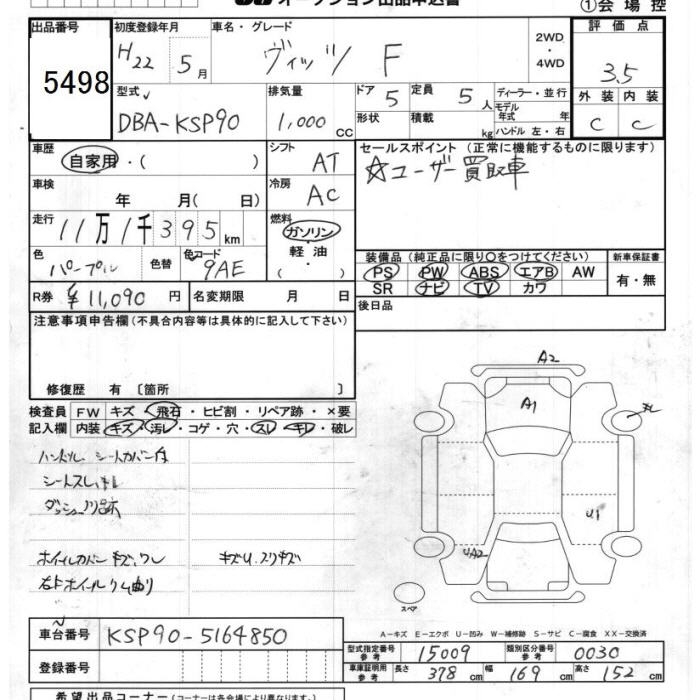 出品番号 初度登録年月 車名・グレード 評価点
5498 H22 5月 ヴィッツ F 2WD・4WD 3.5
型式 排気量 ドア 定員 ディーラー・並行 外装 内装
DBA-KSP90 1,000 cc 5 5人 モデル年式 年 C C
形状 積載 kg ハンドル 左・右
車歴 シフト セールスポイント (正常に機能するものに限ります)
自家用・( ) AT ☆ユーザー買取車
車検 年 月( 日) 冷房 AC
走行 11万1千395km 燃料 ガソリン・軽油・( )
色 パープル 色替 色コード 9AE
装備品 (純正品に限り○をつけてください) 新車保証書
PS PW ABS エアB AW 有・無
SR ナビ TV カワ
R券 ¥11,090円 名変期限 月 日 後日品
注意事項申告欄 (不具合内容等は具体的に記入して下さい)
修復歴 有 〔箇所 〕
検査員記入欄 FW キズ・飛石・ヒビ割・リペア跡・×要
内装 キズ・汚レ・コゲ・穴・スレ・キレ・破レ
A2
A1
U1
UA2
スペア
ホイールカバーキズ、ワレ
A－キズ E－エクボ U－凹み W－補修跡 S－サビ C－腐食 XX－交換済
車台番号 KSP90-5164850
型式指定番号 参考 15009 類別区分番号 参考 0030
登録番号 車庫証明用 参考 長さ 378cm 幅 169cm 高さ 152cm
希望出品コーナー